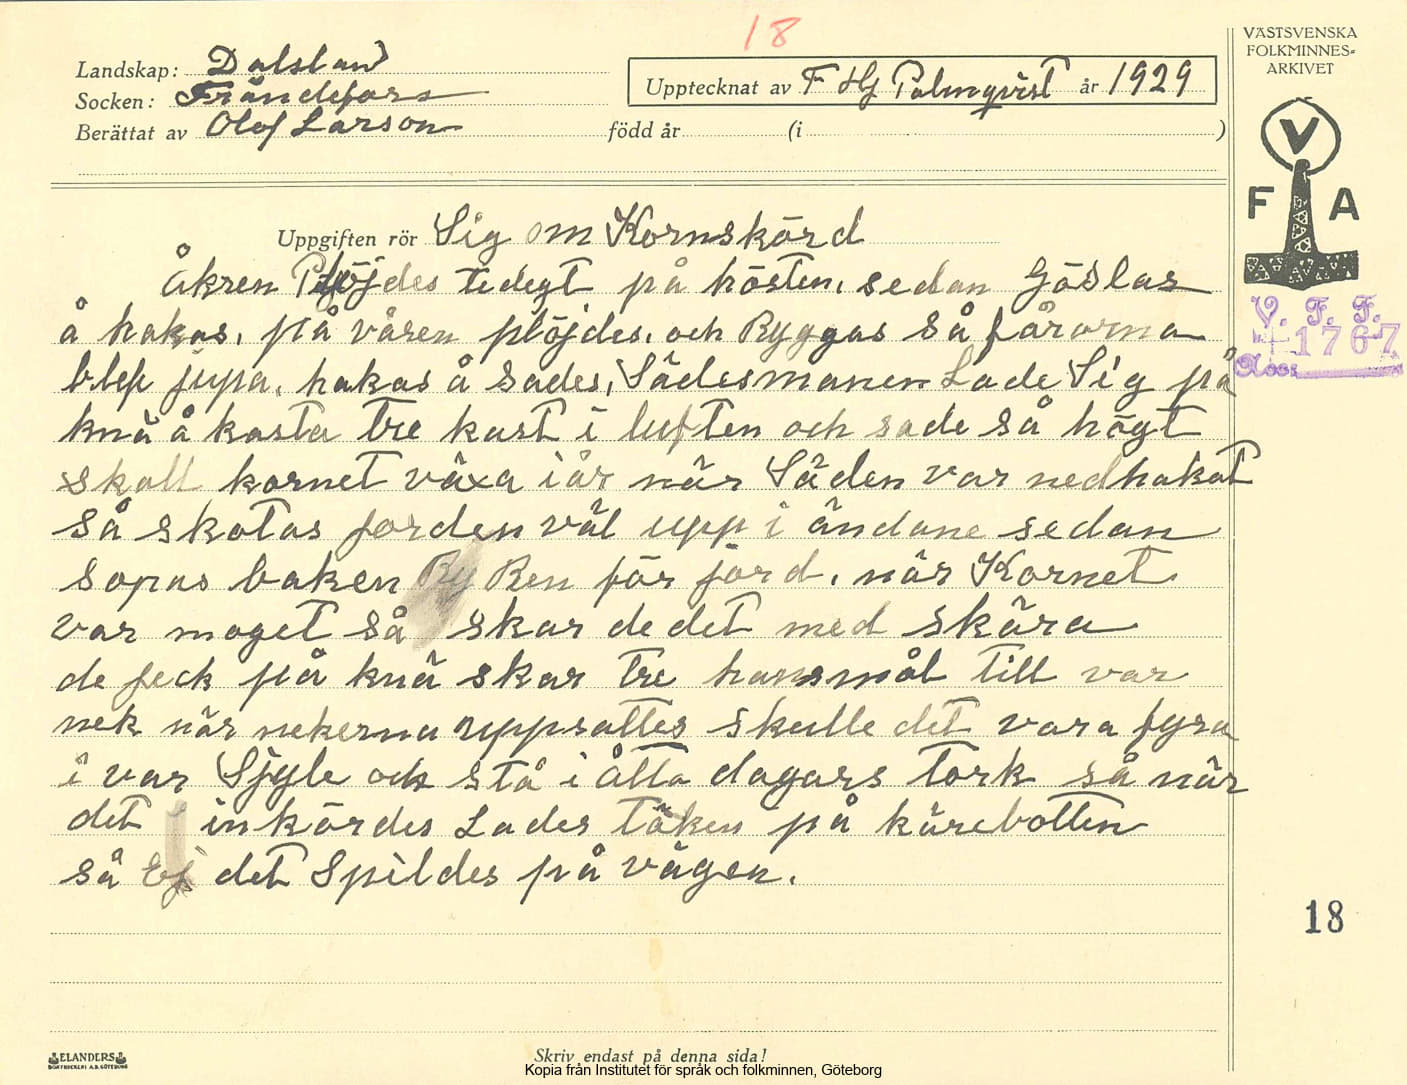 18
VÄSTSVENSKA
FOLKMINNES-
ARKIVET
Landskap: Dalsland
Socken: Frändefors
Upptecknat av F Hj Palmqvist år 1929
Berättat av Olof Larson född år (i )
V
F A
Uppgiften rör Sig om Kornskörd
Åkren Plöjdes tedegt på hösten, sedan Gödslas
å hakas, på våren plöjdes, och Ryggas så fårorna
V. F. F.
1767
blep jupa, hakas å sades, Sädesmanen Lade Sig på
knä å kasta tre kast i luften och sade så högt
skall kornet växa i år när Säden var nedhakat
så skotas jorden väl upp i ändane sedan
sopas baken Ren för jord, när Kornet
var moget så skar de det med skära
de feck på knä skar tre hansmål till var
nek när nekerna uppsattes skulle det vara fyra
i var Sjyle och stå i åtta dagars tork så när
det inkördes Lades täken på kärebotten
så Ej det Spildes på vägen.
18
ELANDERS
BOKTRYCKERI A.B. GÖTEBORG
Skriv endast på denna sida!
Kopia från Institutet för språk och folkminnen, Göteborg